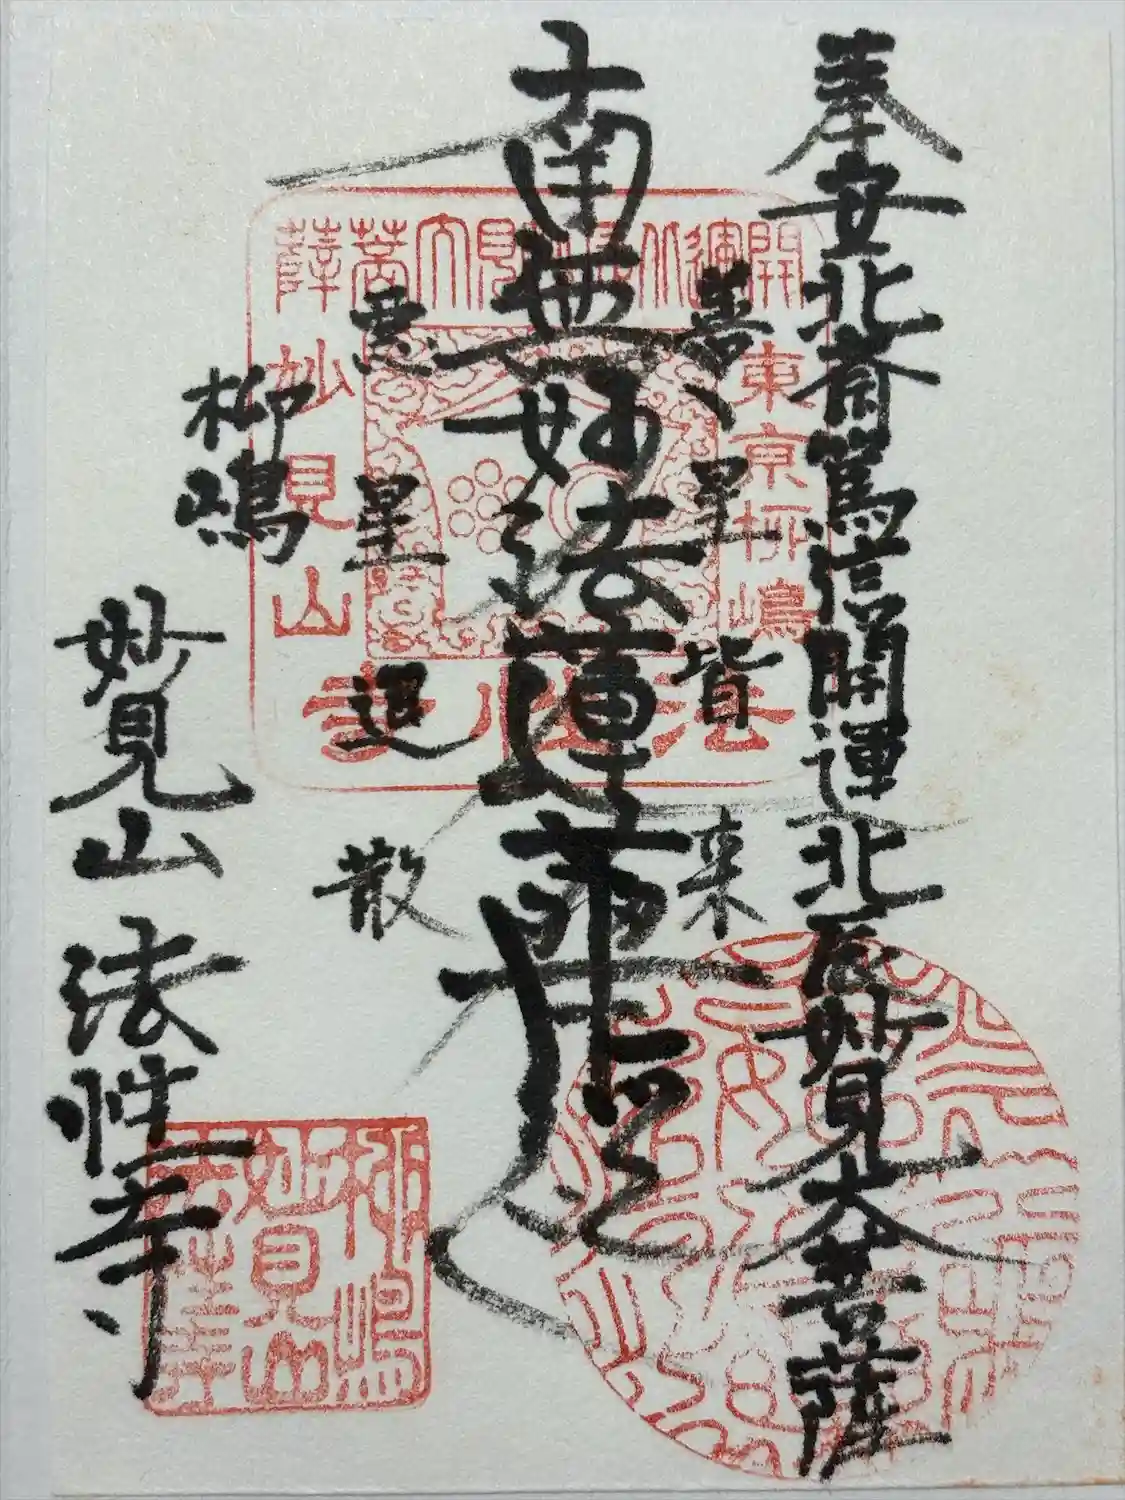 奉安北斎篤信開運北辰妙見大菩薩
善星皆来
南無妙法蓮華経
悪星退散
柳嶋
妙見山 法性寺
開運北辰妙見大菩薩
東京柳嶋
妙見山
法性寺
柳嶋
妙見山
法性寺